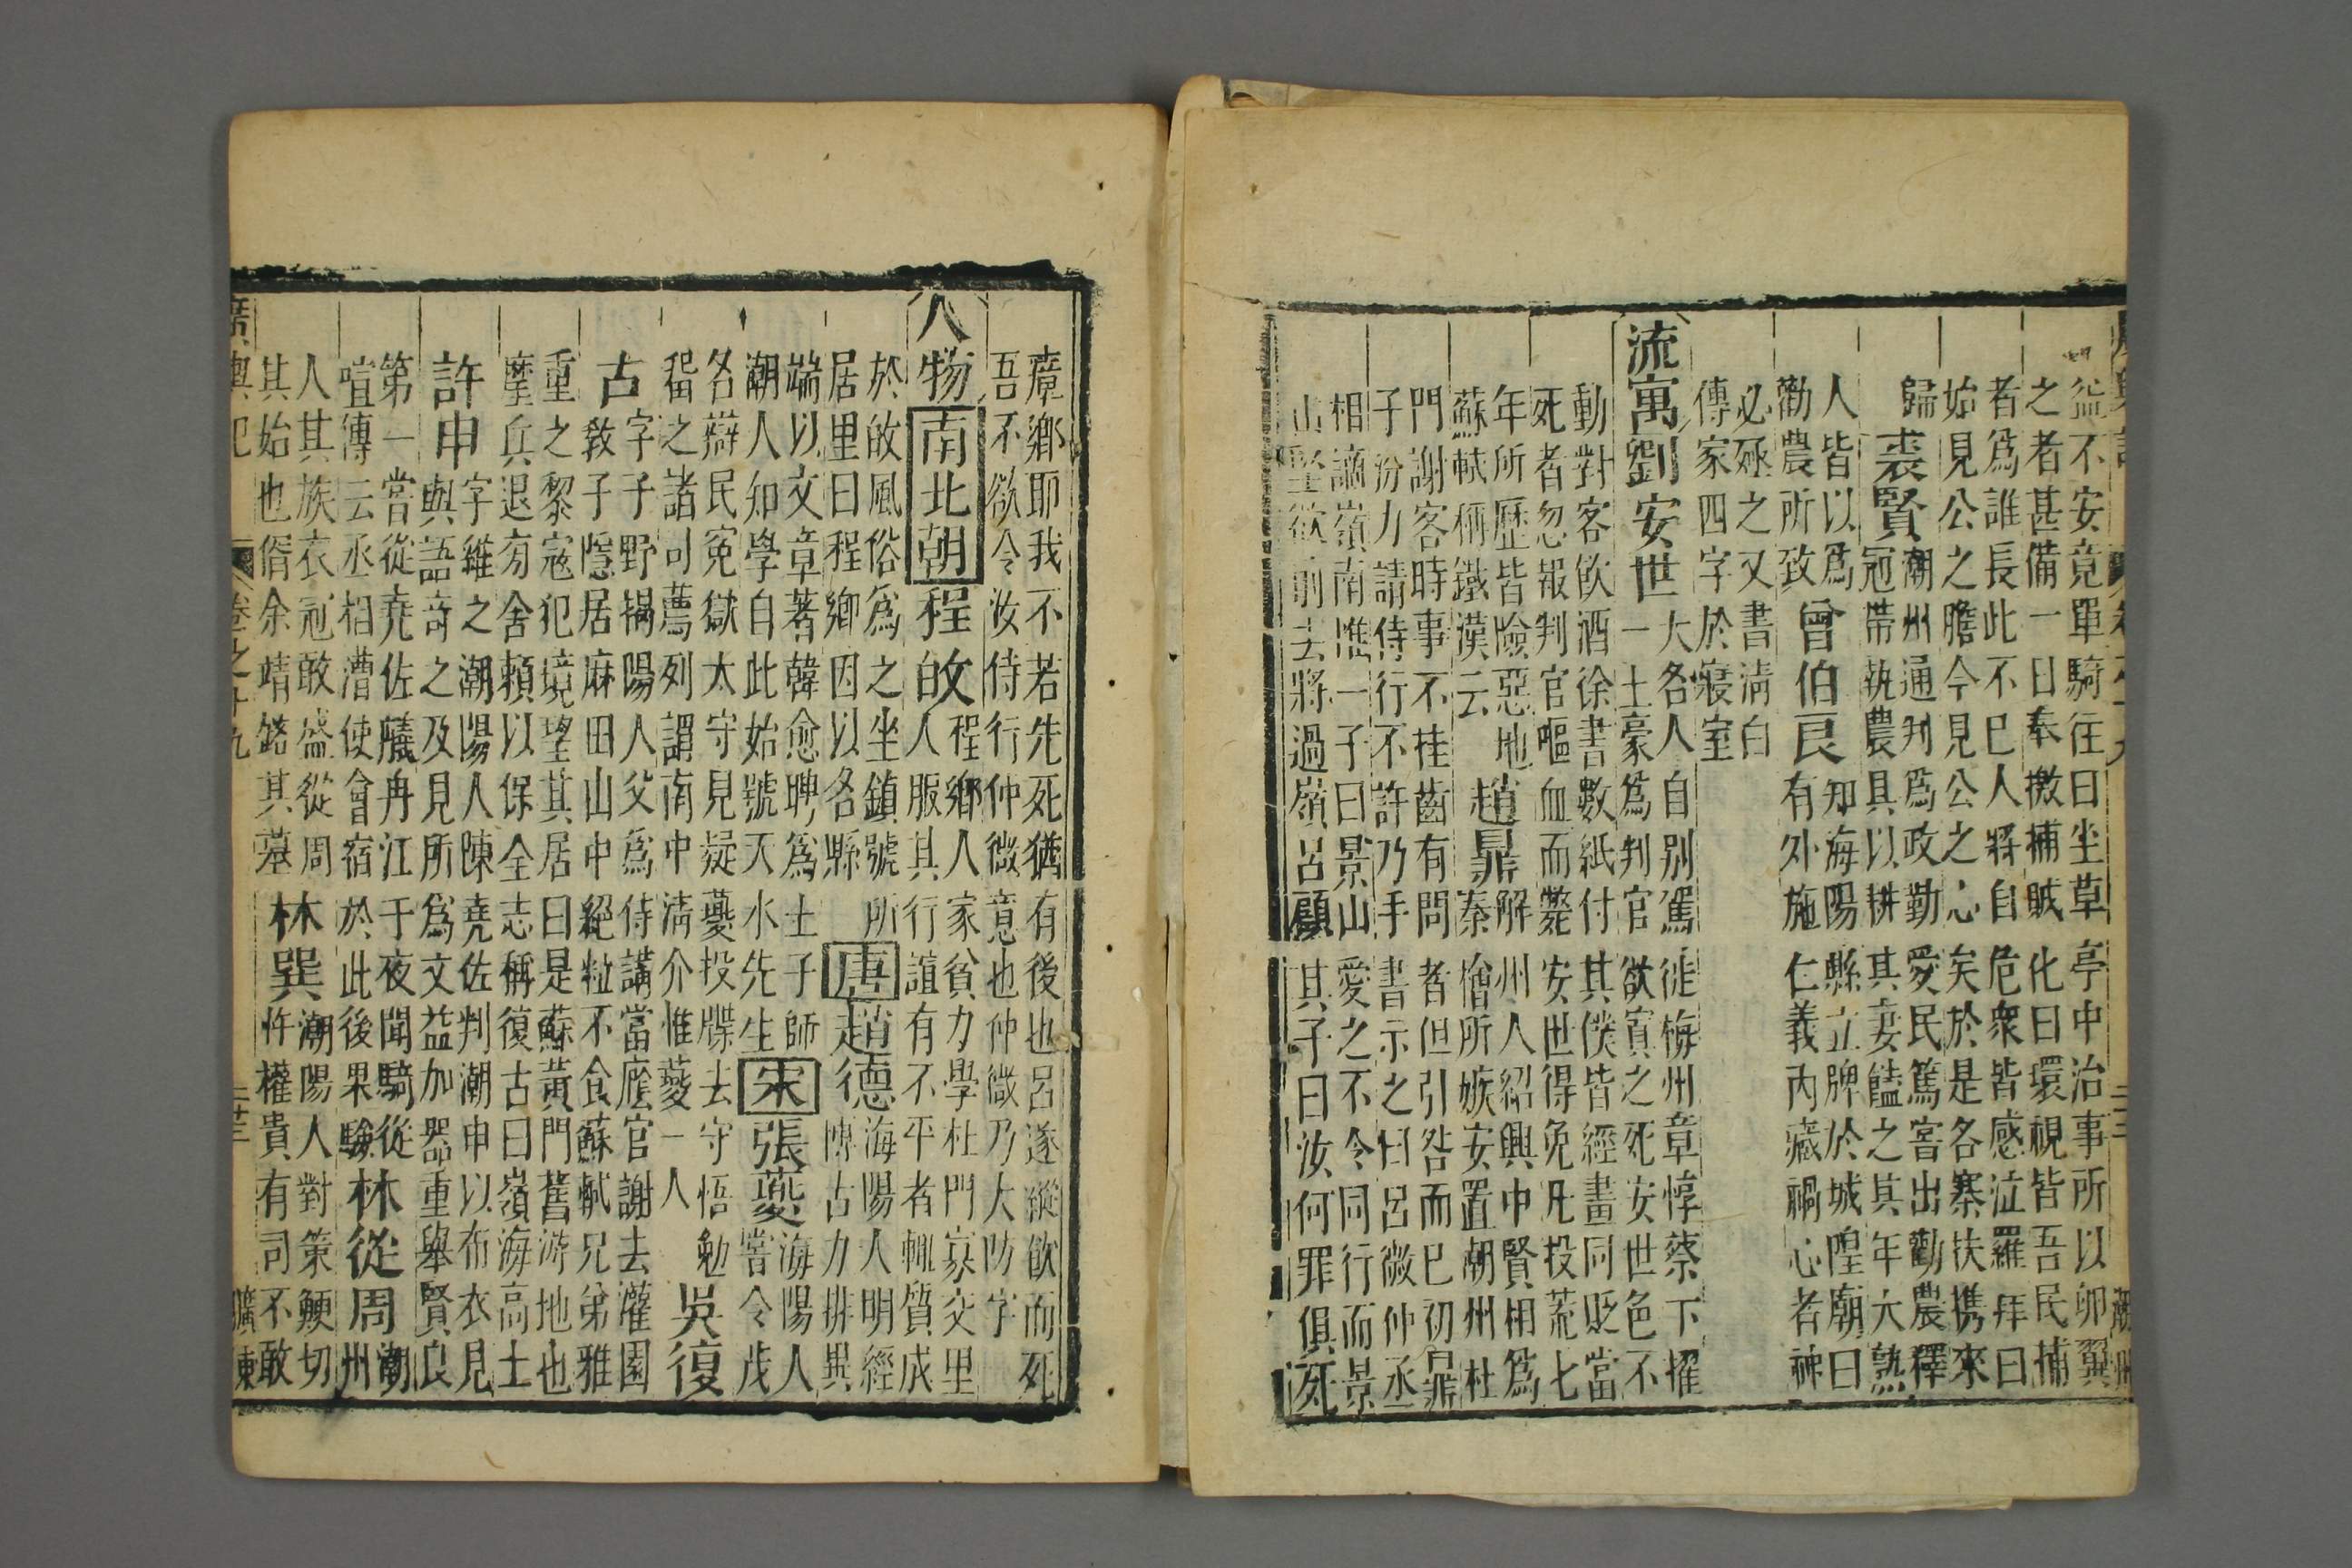 盜不安竟單騎往曰坐草亭中治事所以卵翼
之者甚備一日奉檄捕賊化曰環視皆吾民捕
者爲誰長此不已人將自危衆皆感泣羅拜曰
始見公之膽今見公之心矣於是各寨扶携來
歸
裘賢
潮州通判爲政勤愛民篤嘗出勸農釋
冠帶執農具以耕其妻饁之其年大熟
人皆以爲
勸農所致
曾伯良
知海陽縣立牌於城隍廟曰
有外施仁義內藏禍心者神
必殛之又書淸白
傳家四字於寢室
流寓
劉安世
大名人自別駕徙梅州章惇蔡下擢
一土豪爲判官欲寘之死安世色不
動對客飮酒徐書數紙付其僕皆經畫同貶當
死者忽報判官嘔血而斃安世得免凡投荒七
年所歷皆險惡地
蘇軾稱鐵漢云
趙鼎
解州人紹興中賢相爲
秦檜所嫉安置潮州杜
門謝客時事不挂齒有問者但引咎而已初鼎
子汾力請侍行不許乃手書示之曰呂微仲丞
相謫嶺南惟一子曰景山愛之不令同行而景
山堅欲前去將過嶺呂顧其子曰汝何罪俱死
瘴鄉耶我不若先死猶有後也呂遂縱飮而死
吾不欲令汝侍行仲微意也仲微乃大防字
人物
南北朝
程旼
程鄉人家貧力學杜門寡交里
人服其行誼有不平者輒質成
於旼風俗爲之坐鎮號所
居里曰程鄉因以名縣
唐
趙德
海陽人明經
博古力排異
端以文章著韓愈聘爲士子師
潮人知學自此始號天水先生
宋
張夔
海陽人
嘗令茂
名辯民冤獄太守見疑夔投牒去守悟勉
留之諸司薦列謂南中淸介惟夔一人
吳復
古
字子野揭陽人父爲侍講當廕官謝去灌園
敎子隱居麻田山中絕粒不食蘇軾兄弟雅
重之黎寇犯境望其居曰是蘇黃門舊游地也
麾兵退旁舍賴以保全志稱復古曰嶺海高士
許申
字維之潮陽人陳堯佐判潮申以布衣見
與語奇之及見所爲文益加器重舉賢良
第一嘗從堯佐艤舟江于夜聞騎從
喧傳云丞相漕使會宿於此後果驗
林從周
潮
州
人其族衣冠敢盛從周潮陽人對策鯁切
其始也偕余靖銘其墓
林巽
忤權貴有司不敢
卷之十九